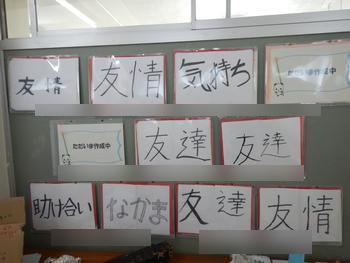 友情
友情
気持ち
ただいま作成中
ただいま作成中
友達
友達
助け合い
なかま
友達
友情